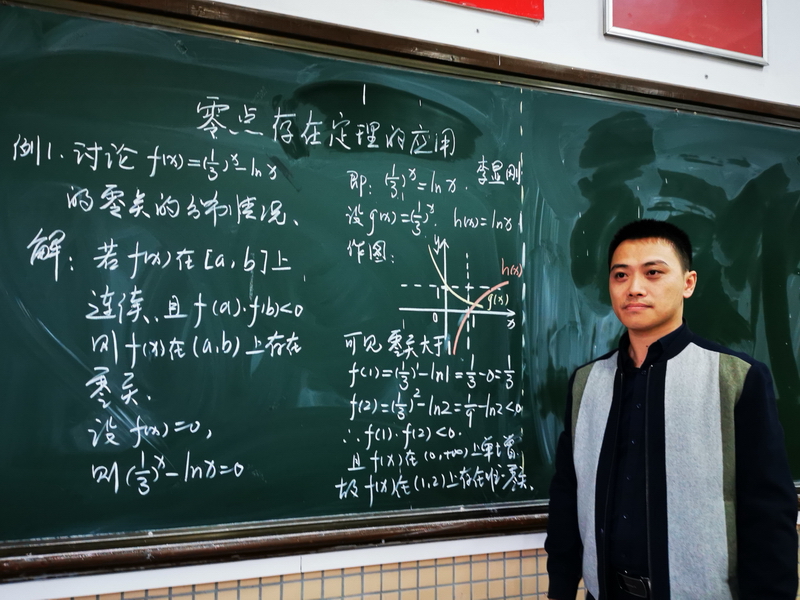 零点存在定理的应用
例1. 讨论 f(x)=(1/3)^x-lnx
的零点的分布情况、
解: 若f(x)在[a,b]上
连续、且f(a)·f(b)<0
则f(x)在(a,b)上存在
零点.
设f(x)=0,
则(1/3)^x-lnx=0
即: (1/3)^x=lnx.
李显刚
设g(x)=(1/3)^x. h(x)=lnx
作图:
y
h(x)
1
g(x)
0
x
可见零点大于1
f(1)=(1/3)^1-ln1=1/3-0=1/3
f(2)=(1/3)^2-ln2=1/9-ln2<0
∴f(1)·f(2)<0.
且f(x)在(0,+∞)上单增
故f(x)在(1,2)上存在唯一零点.